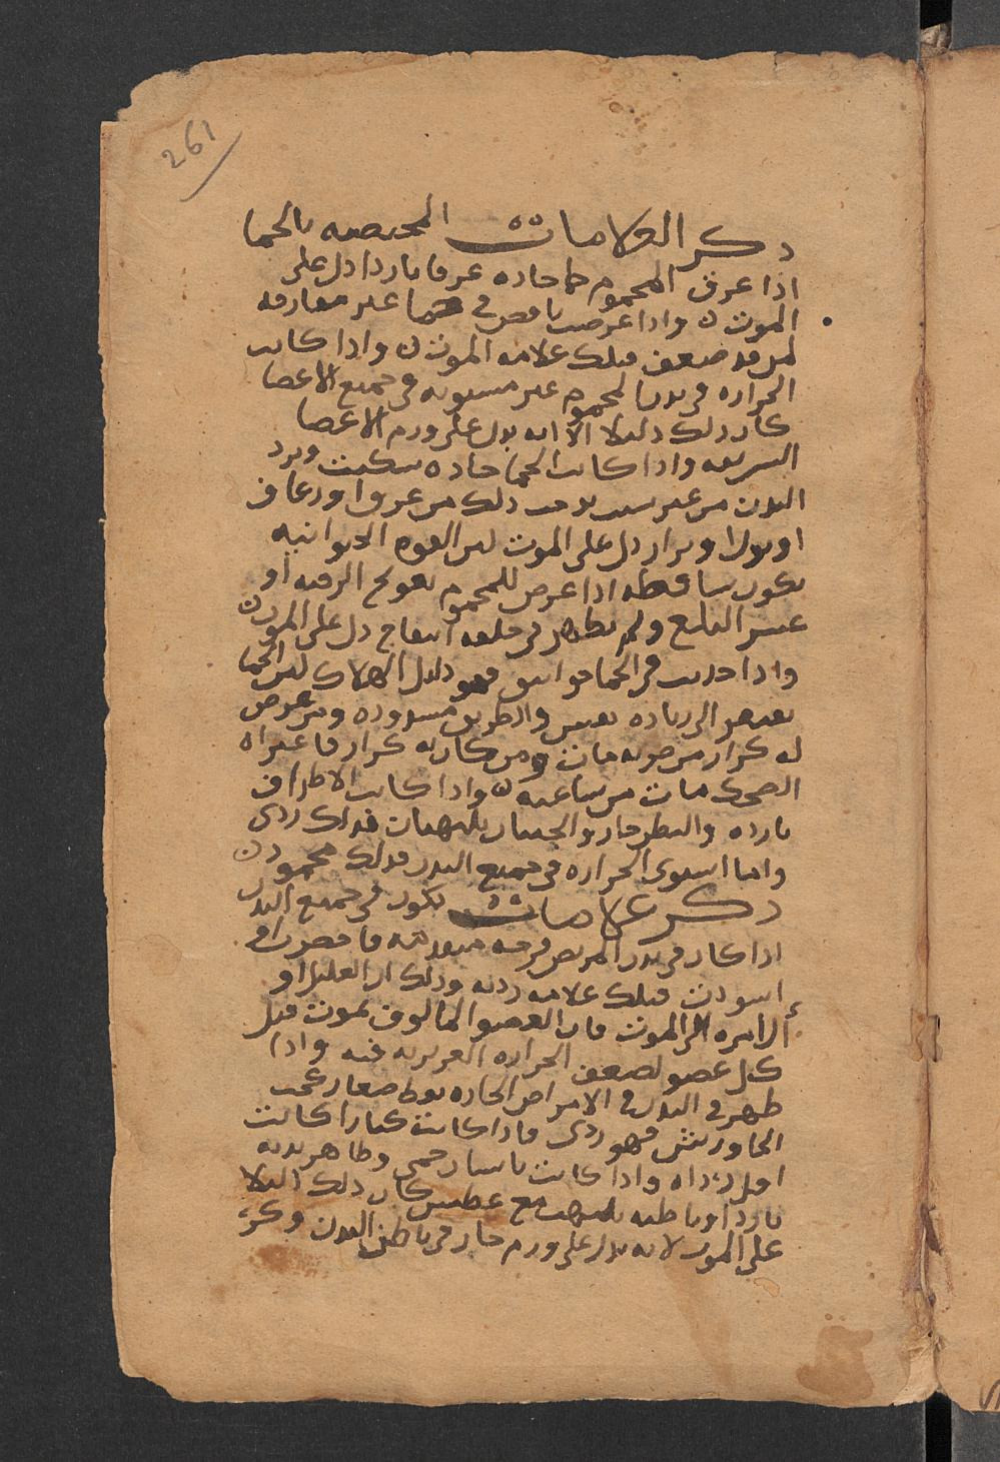 261
ذكر العلامات المختصه بالحما
اذا عرق المحموم حما حاده عرقا باردا دل على
الموت ن واذا عرضت نافض في حما غير مفارقه
لمن قد ضعف فتلك علامه الموت ن واذا كانت
الحراره في بدن المحموم غير مستويه في جميع الاعضا
كان ذلك دليلا الا انه يدل على ورم الاعضا
الشريفه واذا كانت الحما حاده سكنت وبرد
البدن من غير سبب يوجب ذلك من عرق او رعاف
او بول او براز دل على الموت لان القوه الحيوانيه
تكون ساقطه اذا عرض للمحموم تعويج الرقبه او
عسر البلع ولم يظهر في حلقه انتفاخ دل على الموت ن
واذا حدث في الحما خوانيق فهو دليل الهلاك لان الحما
تحتاج الى زياده تنفس والطريق مسدوده ومن عرض
له كزاز من ضربه مات ومن كان به كزاز فاعتراه
الضحك مات من ساعته ن واذا كانت الاطراف
بارده والبطن حار والجنبان يلتهبان فذلك ردى
واما استوى الحراره في جميع البدن فذلك محمود ن
ذكر علامات تكون في جميع البدن
اذا كان في بدن المريض قرحه متقدمه فاخضرت او
اسودت فتلك علامه رديه وذلك ان العليل او
الامره الى الموت فان العضو المالوف يموت قبل
كل عضو لضعف الحراره الغريزيه فيه واذا
ظهر في البدن في الامراض الحاده صغار تحت
الجاورش فهو ردى فاذا كانت كبارا كانت
اقل رداه واذا كانت بانسان حمى وظاهر بدنه
باردا وباطنه يلتهب مع عطش كان ذلك دليلا
على الموت لانه يدل على ورم حار في باطن البدن